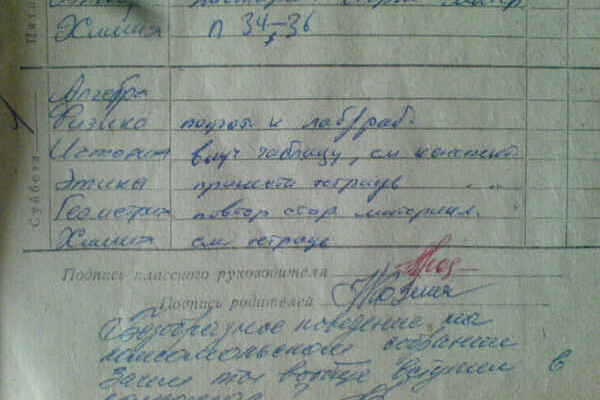 Химия п 34-36
Суббота
Алгебра
Физика подгот к лаб/раб.
История выуч таблицу, см конспект
Этика принести тетрадь
Геометрия повтор стар материал.
Химия см тетрадь
Подпись классного руководителя
Подпись родителей
Безобразное поведение на
комсомольском собрании
Зачем ты вообще вступил в